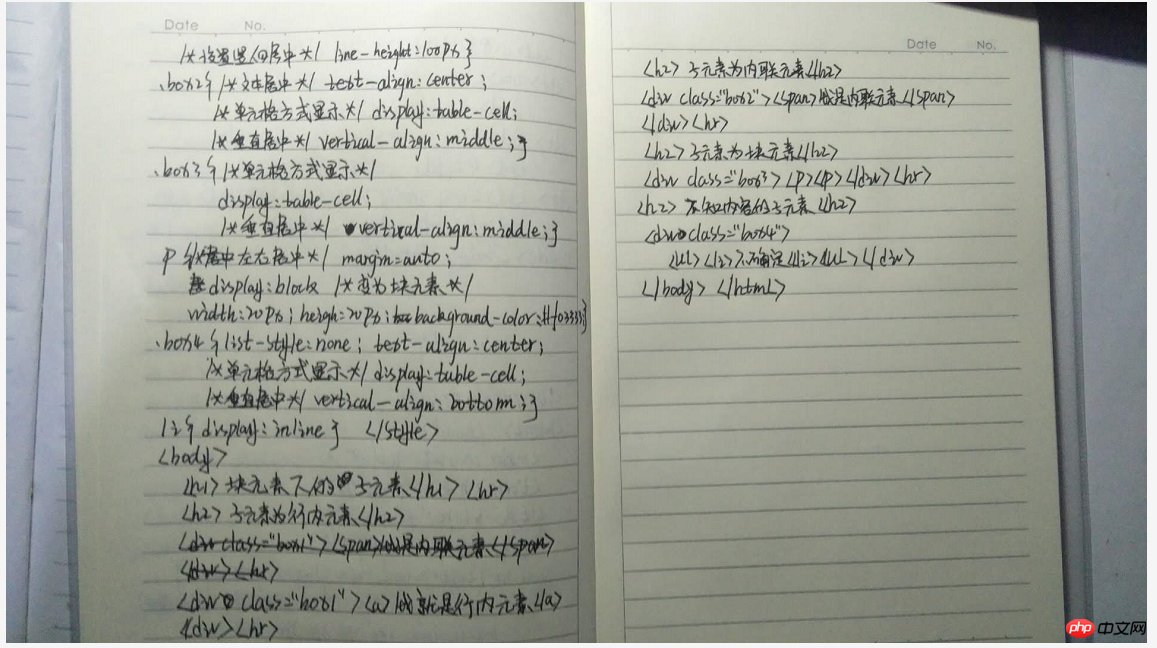 Date No.
/*设置垂直居中*/ line-height:100px }
.box2{ /*文本居中*/ text-align:center;
/*单元格方式显示*/ display:table-cell;
/*垂直居中*/ vertical-align:middle;}
.box3{ /*单元格方式显示*/
display:table-cell;
/*垂直居中*/ vertical-align:middle;}
p 左右居中*/ margin=auto;
display:block /*变为块元素*/
width:20px; heigh=20px; background-color:#f03333;}
.box4{ list-style:none; text-align:center;
/*单元格方式显示*/ display:table-cell;
/*垂直居中*/ vertical-align:bottom;}
li{ display:inline} </style>
<body>
<h1>块元素下的子元素</h1> <hr>
<h2>子元素为行内元素</h2>
<div class="box1"> <span>我是内联元素</span>
</div><hr>
<div class="box1"> <a>我就是行内元素</a>
</div><hr>
Date No.
<h2>子元素为内联元素</h2>
<div class="box2"><span>我是内联元素</span>
</div><hr>
<h2>子元素为块元素</h2>
<div class="box3"> <p><p> </div> <hr>
<h2> 不知内容的子元素 </h2>
<div class="box4">
<ul> <li>不确定</li> <ul> </div>
</body> </html>
php 中文网